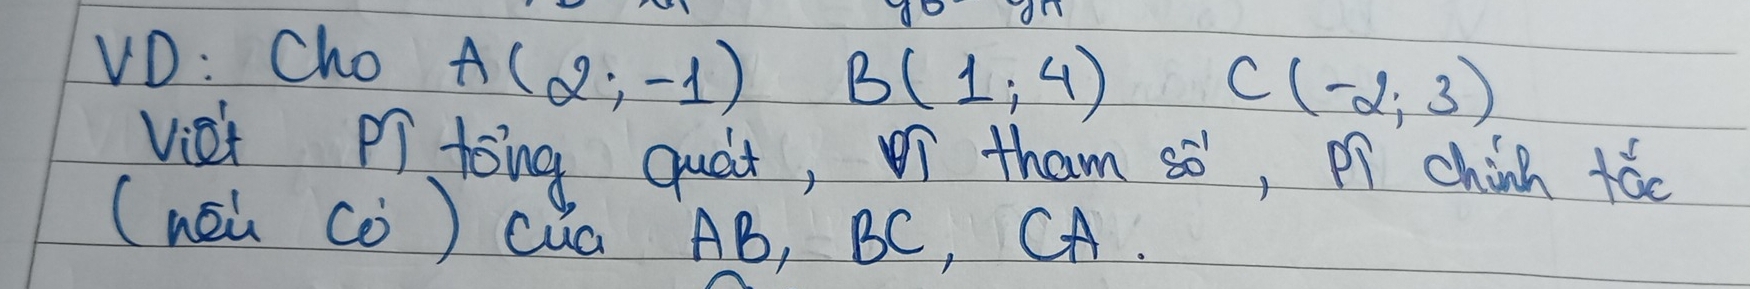 VD: Cho A(2; -1) B(1; 4) C(-2; 3)
Viết PT tổng quát, PT tham số, PT chính tắc
(nếu có) của AB, BC, CA.